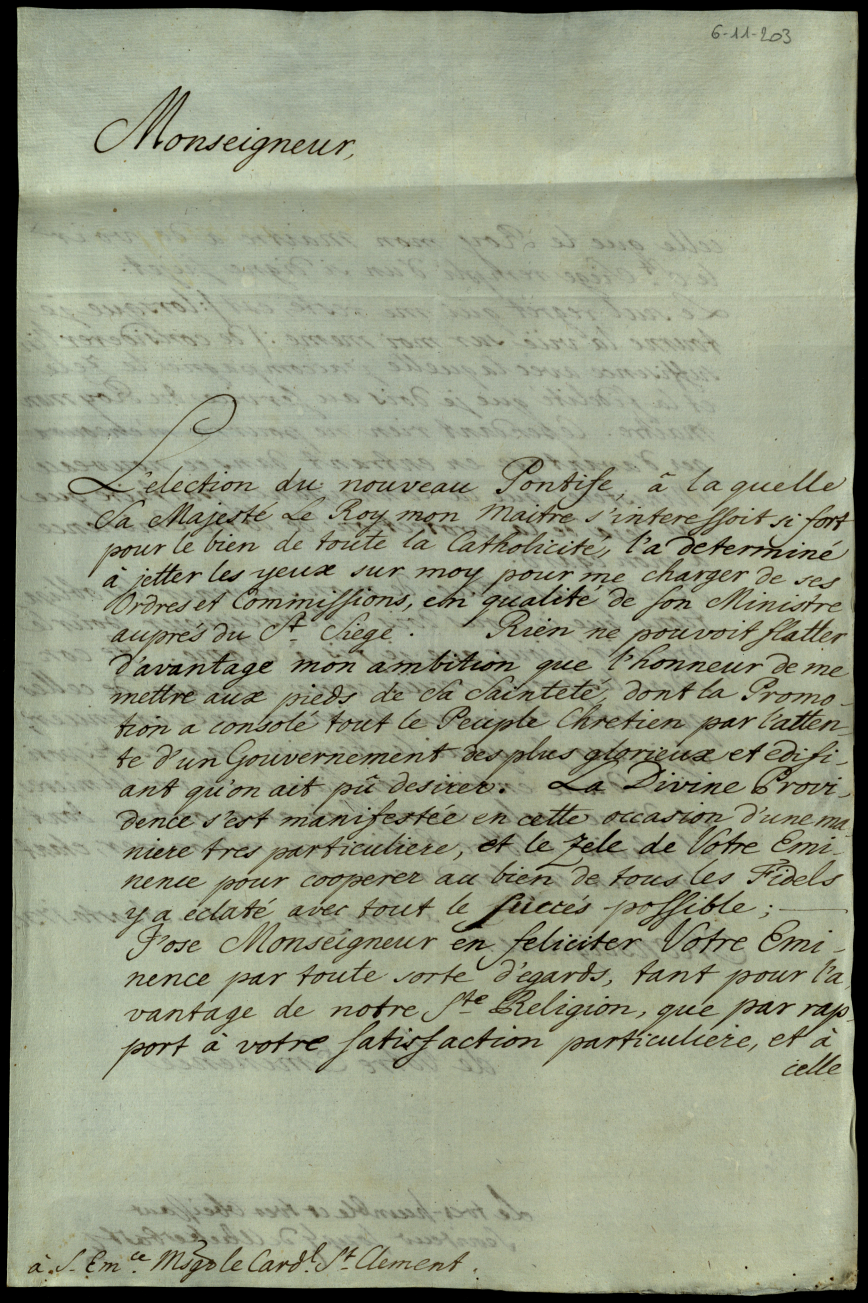 6-11-203
Monseigneur,
L'election du nouveau Pontife, à laquelle
Sa Majesté Le Roy mon Maitre s'interessoit si fort
pour le bien de toute la Catholicité, l'a determiné
à jetter les yeux sur moy pour me charger de ses
Ordres et Commissions, en qualité de son Ministre
auprés du St. Siege. Rien ne pouvoit flatter
d'avantage mon ambition que l'honneur de me
mettre aux pieds de Sa Sainteté, dont la Promo-
tion a consolé tout le Peuple Chretien par l'atten-
te d'un Gouvernement des plus glorieux et edifi-
ant qu'on ait pû desirer. La Divine Provi-
dence s'est manifestée en cette occasion d'une ma
niere tres particuliere, et le Zele de Votre Emi-
nence pour cooperer au bien de tous les Fidels
y a éclaté avec tout le succés possible; —
J'ose Monseigneur en feliciter Votre Emi-
nence par toute sorte d'egards, tant pour l'a
vantage de notre Ste Religion, que par rap-
port à votre satisfaction particuliere, et à
celle
à S. Emce. Msgr le Cardl. St. Clement.